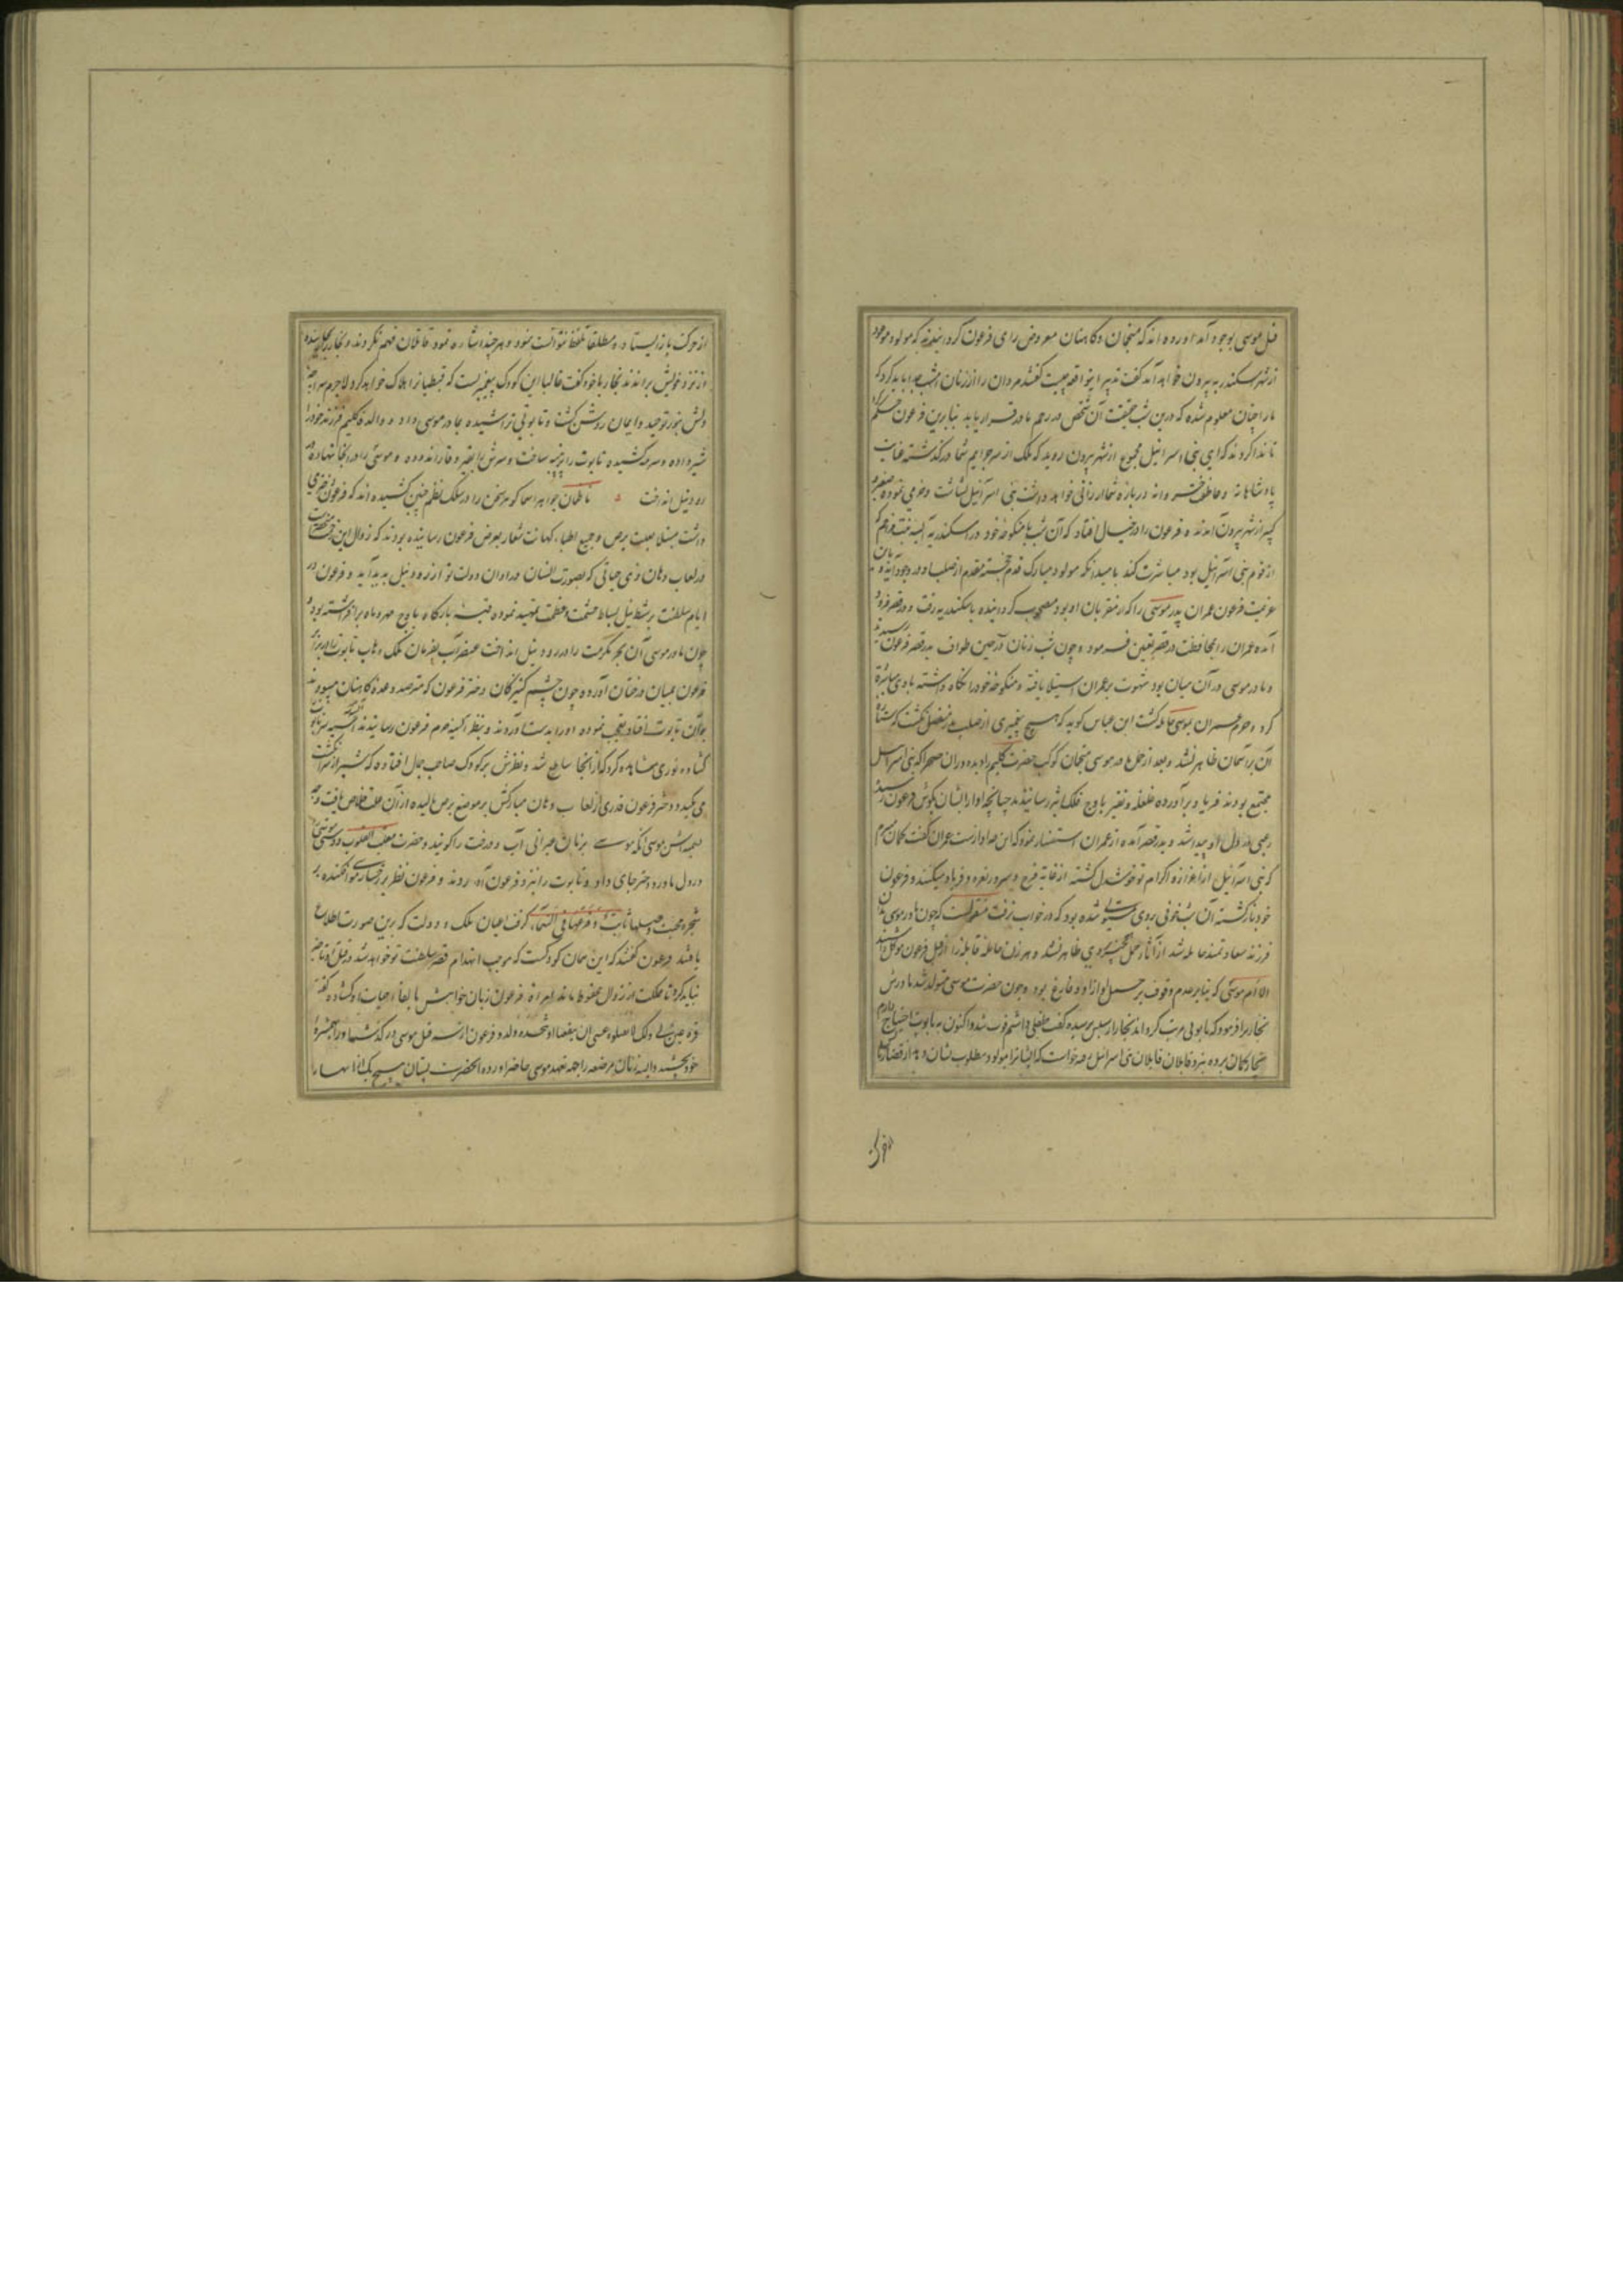 قبل موسی بوجود آمد آورده اند که منجمان و کاهنان معروض رای فرعون گردانیدند که مولود موعود
از شهر اسکندریه بیرون خواهد آمد گفت تدبیر این واقعه چیست گفتند مردان را از زنان امشب جدا باید کرد که
ما را چنان معلوم شده که درین شب حقیقت آن شخص در رحم مادر قرار یابد بنابرین فرعون حکم کرد
تا ندا کردند که ای بنی اسرائیل مجموع از شهر بیرون روید که ملک از سر جرایم شما در گذشته عنایت
پادشاهانه و عاطفت خسروانه درباره شما ارزانی خواهد داشت بنی اسرائیل بشاشت و خرمی نموده صغیر و
کبیر از شهر بیرون آمدند و فرعون را در خیال افتاد که آن شب با منکوحه خود در اسکندریه آسیه بنت مزاحم که
از قوم بنی اسرائیل بود مباشرت کند بامید آنکه مولود مبارک قدم خجسته مقدم از صلب او در وجود آید و بان
عزیمت فرعون عمران پدر موسی را که از مقربان او بود مصحوب گردانیده باسکندریه رفت و در قصر فرود
آمده عمران را بمحافظت در قصر تعیین فرمود و چون شب زنان در حین طواف بدر قصر فرعون رسیدند
و مادر موسی در آن میان بود شهوت بر عمران استیلا یافته و منکوحه خود را نگاه داشته با وی مباشرت
کرد و حرم عمران بموسی حامله گشت ابن عباس گوید که هیچ پیغمبری از صلب پدر منفصل نگشت که ستاره
آن بر آسمان ظاهر نشد و بعد از حمل مادر موسی منجمان کوکب حضرت کلیم را دیده در آن صحرا که بنی اسرائیل
مجتمع بودند فریاد برآورده غلغله و نفیر باوج فلک اثیر رسانیدند چنانچه آواز ایشان بگوش فرعون رسید
رعبی در دل او پیدا شد و بدر قصر آمده از عمران استفسار نمود که این صدا و آواز چیست عمران گفت گمان میبرم
که بنی اسرائیل از اعزاز و اکرام تو خوشدل گشته از غایت فرح و سرور نعره و فریاد میکنند و فرعون
خود بازگشته آن شب خوفی بروی مستولی شده بود که در خواب نرفت منقولست که چون مادر موسی بدان
فرزند سعادتمند حامله شد از آثار حمل چیزی بروی ظاهر نشد و هر زن حامله قابله را از قبل فرعون موکل داشتند
الا ام موسی که بنابر عدم وقوف بر حمل او ازو فارغ بودند چون حضرت موسی متولد شد مادرش
نجار را فرمود که تابوتی مرتب گرداند نجار از سبب پرسیده گفت طفلی داشتم فوت شد و اکنون به تابوت احتیاج دارم
نجار گمان برده نزد قابلان قاتلان بنی اسرائیل رفته خواست که ایشانرا بمولود مطلوب نشان دهد از قضا زبانش
از حرکت باز ایستاده مطلقا تلفظ نتوانست نمود و هر چند اشاره نمود قاتلان فهم نکردند و نجار را
از نزد خویش براندند نجار با خود گفت غالبا این کودک پیغمبریست که قبطیانرا هلاک خواهد کرد لاجرم سراچه
دلش بنور توحید و ایمان روشن گشت و تابوتی تراشیده بمادر موسی داد و والده کلیم فرزند خود را
شیر داده و سرمه کشیده تابوت را پرپنبه ساخت و سرش بقیر و قار اندوده و موسی را در آنجا نهاده در
رود نیل انداخت ناظمان جواهر اسما گوهر سخن را در سلک نظم چنین کشیده اند که فرعون دختری
داشت مبتلا بعلت برص و جمیع اطباء کهانت شعار بعرض فرعون رسانیده بودند که زوال این مرض منحصرست
در لعاب دهان ذی حیاتی که بصورت انسان در اوان دولت تو از رود نیل پدید آید و فرعون در
ایام سلطنت بر شط نیل بساط حشمت و عظمت تمهید نموده قبه بارگاه باوج مهر و ماه برافراشته بود و
چون مادر موسی آن بحر مکرمت را در رود نیل انداخت عنصر آب بفرمان ملک وهاب تابوت را در برابر
فرعون بمیان درختان آورده چون چشم کنیزکان دختر فرعون که مترصد وعده کاهنان میبودند
بر آن تابوت افتاد تعجب نموده او را بدست آوردند و بنظر آسیه حرم فرعون رسانیدند آسیه سر تابوت
گشاده نوری مشاهده کرد که از آنجا ساطع شد و نظرش بر کودک صاحب جمال افتاد که شیر از سر انگشت
می مکید و دختر فرعون قدری از لعاب دهان مبارکش بر موضع برص مالیده از آن علت خلاص یافت و
موسی نام نهاد بزبان عبرانی آب و درخت را گویند و حضرت مقلب القلوب دوستی موسی
در دل مادر و دختر جای داد و تابوت را نزد فرعون آوردند و فرعون نظر بر رخسار موسی افکنده بر
شجره محبت اصلها ثابت و فرعها فی السماء گرفت اعیان ملک و دولت که برین صورت اطلاع
یافتند فرعون گفتند که این همان کودکست که موجب انهدام قصر سلطنت تو خواهد شد در قتل او تاخیر
نباید کرد تا مملکت از زوال محفوظ ماند فرعون زبان خواهش بابقاء حیات او گشاده گفت
قرة عین لی ولک لا تقتلوه عسی ان ینفعنا او نتخذه ولدا و فرعون از سر قتل موسی در گذشت و او را بهمشیره
خود بخشید و آسیه زنان مرضعه را جهت تعهد موسی حاضر آورده آنحضرت پستان هیچ یک از آنها را